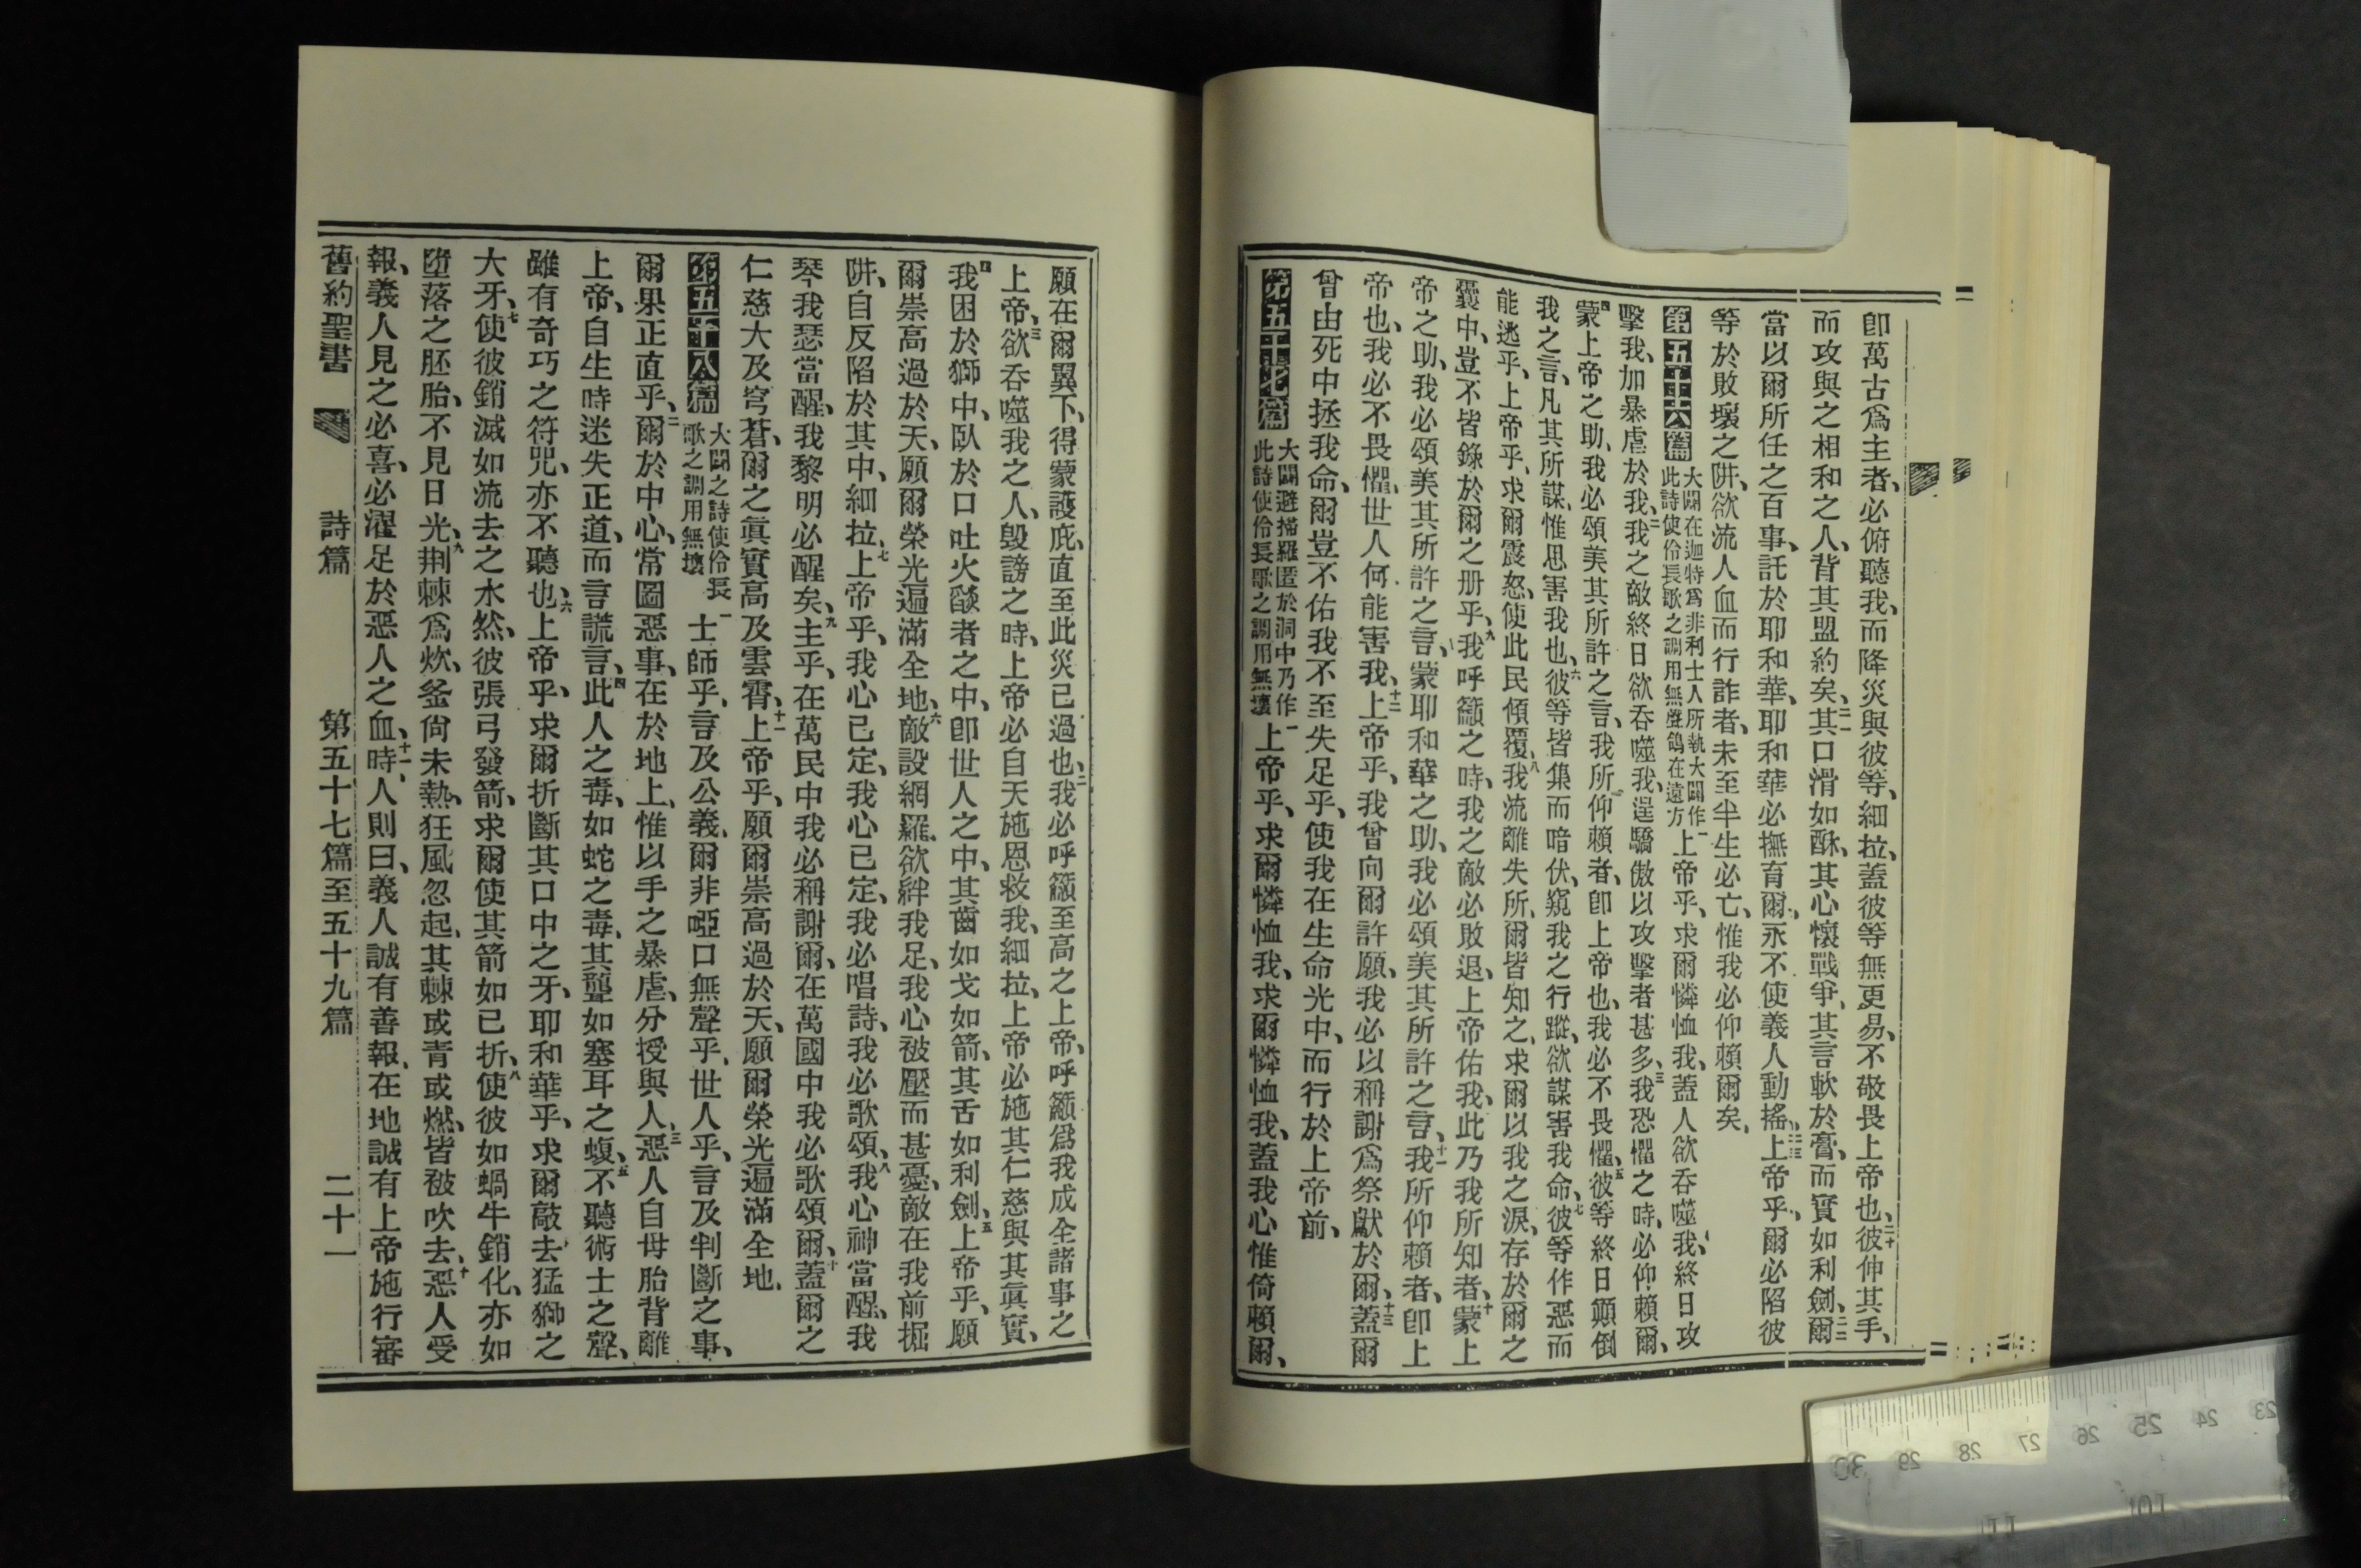 卽萬古爲主者、必俯聽我、而降災與彼等、細拉、蓋彼等無更易、不敬畏上帝也、二十彼伸其手、
而攻與之相和之人、背其盟約矣、二一其口滑如酥、其心懷戰爭、其言軟於膏、而實如利劍、二二爾
當以爾所任之百事、託於耶和華、耶和華必撫育爾、永不使義人動搖、二三上帝乎、爾必陷彼
等於敗壞之阱、欲流人血而行詐者、未至半生必亡、惟我必仰賴爾矣、
第五十六篇 大闢在迦特爲非利士人所執大闢作此詩使伶長歌之調用無聲鴿在遠方 一上帝乎、求爾憐恤我、蓋人欲吞噬我、終日攻
擊我、加暴虐於我、二我之敵終日欲吞噬我、逞驕傲以攻擊者甚多、三我恐懼之時、必仰賴爾、
四蒙上帝之助、我必頌美其所許之言、我所仰賴者、卽上帝也、我必不畏懼、五彼等終日顚倒
我之言、凡其所謀、惟思害我也、六彼等皆集而暗伏、窺我之行蹤、欲謀害我命、七彼等作惡而
能逃乎、上帝乎、求爾震怒、使此民傾覆、八我流離失所、爾皆知之、求爾以我之淚、存於爾之
囊中、豈不皆錄於爾之册乎、九我呼籲之時、我之敵必敗退、上帝佑我、此乃我所知者、十蒙上
帝之助、我必頌美其所許之言、蒙耶和華之助、我必頌美其所許之言、十一我所仰賴者、卽上
帝也、我必不畏懼、世人何能害我、十二上帝乎、我曾向爾許願、我必以稱謝爲祭獻於爾、十三蓋爾
曾由死中拯我命、爾豈不佑我不至失足乎、使我在生命光中、而行於上帝前、
第五十七篇 大闢避掃羅匿於洞中乃作此詩使伶長歌之調用無壞 一上帝乎、求爾憐恤我、求爾憐恤我、蓋我心惟倚賴爾、
願在爾翼下、得蒙護庇、直至此災已過也、二我必呼籲至高之上帝、呼籲爲我成全諸事之
上帝、三欲吞噬我之人、毀謗之時、上帝必自天施恩救我、細拉、上帝必施其仁慈與其眞實、
四我困於獅中、臥於口吐火燄者之中、卽世人之中、其齒如戈如箭、其舌如利劍、五上帝乎、願
爾崇高過於天、願爾榮光遍滿全地、六敵設網羅、欲絆我足、我心被壓而甚憂、敵在我前掘
阱、自反陷於其中、細拉、七上帝乎、我心已定、我心已定、我必唱詩、我必歌頌、八我心神當醒、我
琴我瑟當醒、我黎明必醒矣、九主乎、在萬民中我必稱謝爾、在萬國中我必歌頌爾、十蓋爾之
仁慈大及穹蒼、爾之眞實高及雲霄、十一上帝乎、願爾崇高過於天、願爾榮光遍滿全地、
第五十八篇 大闢之詩使伶長歌之調用無壞 一士師乎、言及公義、爾非啞口無聲乎、世人乎、言及判斷之事、
爾果正直乎、二爾於中心、常圖惡事、在於地上、惟以手之暴虐、分授與人、三惡人自母胎背離
上帝、自生時迷失正道、而言謊言、四此人之毒、如蛇之毒、其聾如塞耳之蝮、五不聽術士之聲、
雖有奇巧之符咒、亦不聽也、六上帝乎、求爾折斷其口中之牙、耶和華乎、求爾敲去猛獅之
大牙、七使彼銷滅如流去之水然、彼張弓發箭、求爾使其箭如已折、八使彼如蝸牛銷化、亦如
墮落之胚胎、不見日光、九荆棘爲炊、釜尙未熱、狂風忽起、其棘或青或燃、皆被吹去、十惡人受
報、義人見之必喜、必濯足於惡人之血、十一時、人則曰、義人誠有善報、在地誠有上帝施行審
舊約聖書 詩篇 第五十七篇至五十九篇 二十一
23 24 25 26 27 28 29 30